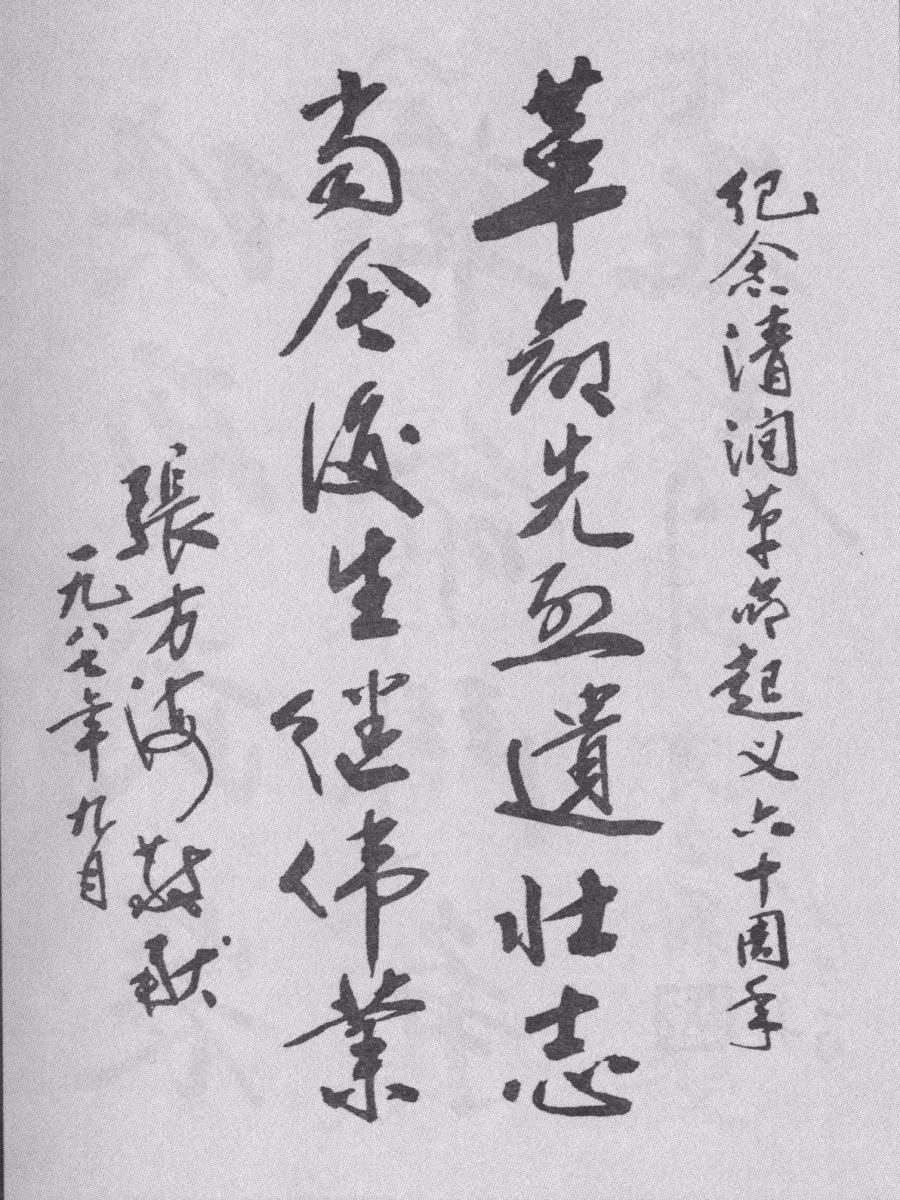 纪念清涧革命起义六十周年
革命先烈遺壮志
當今後生继伟業
張方海敬献
一九八七年九月